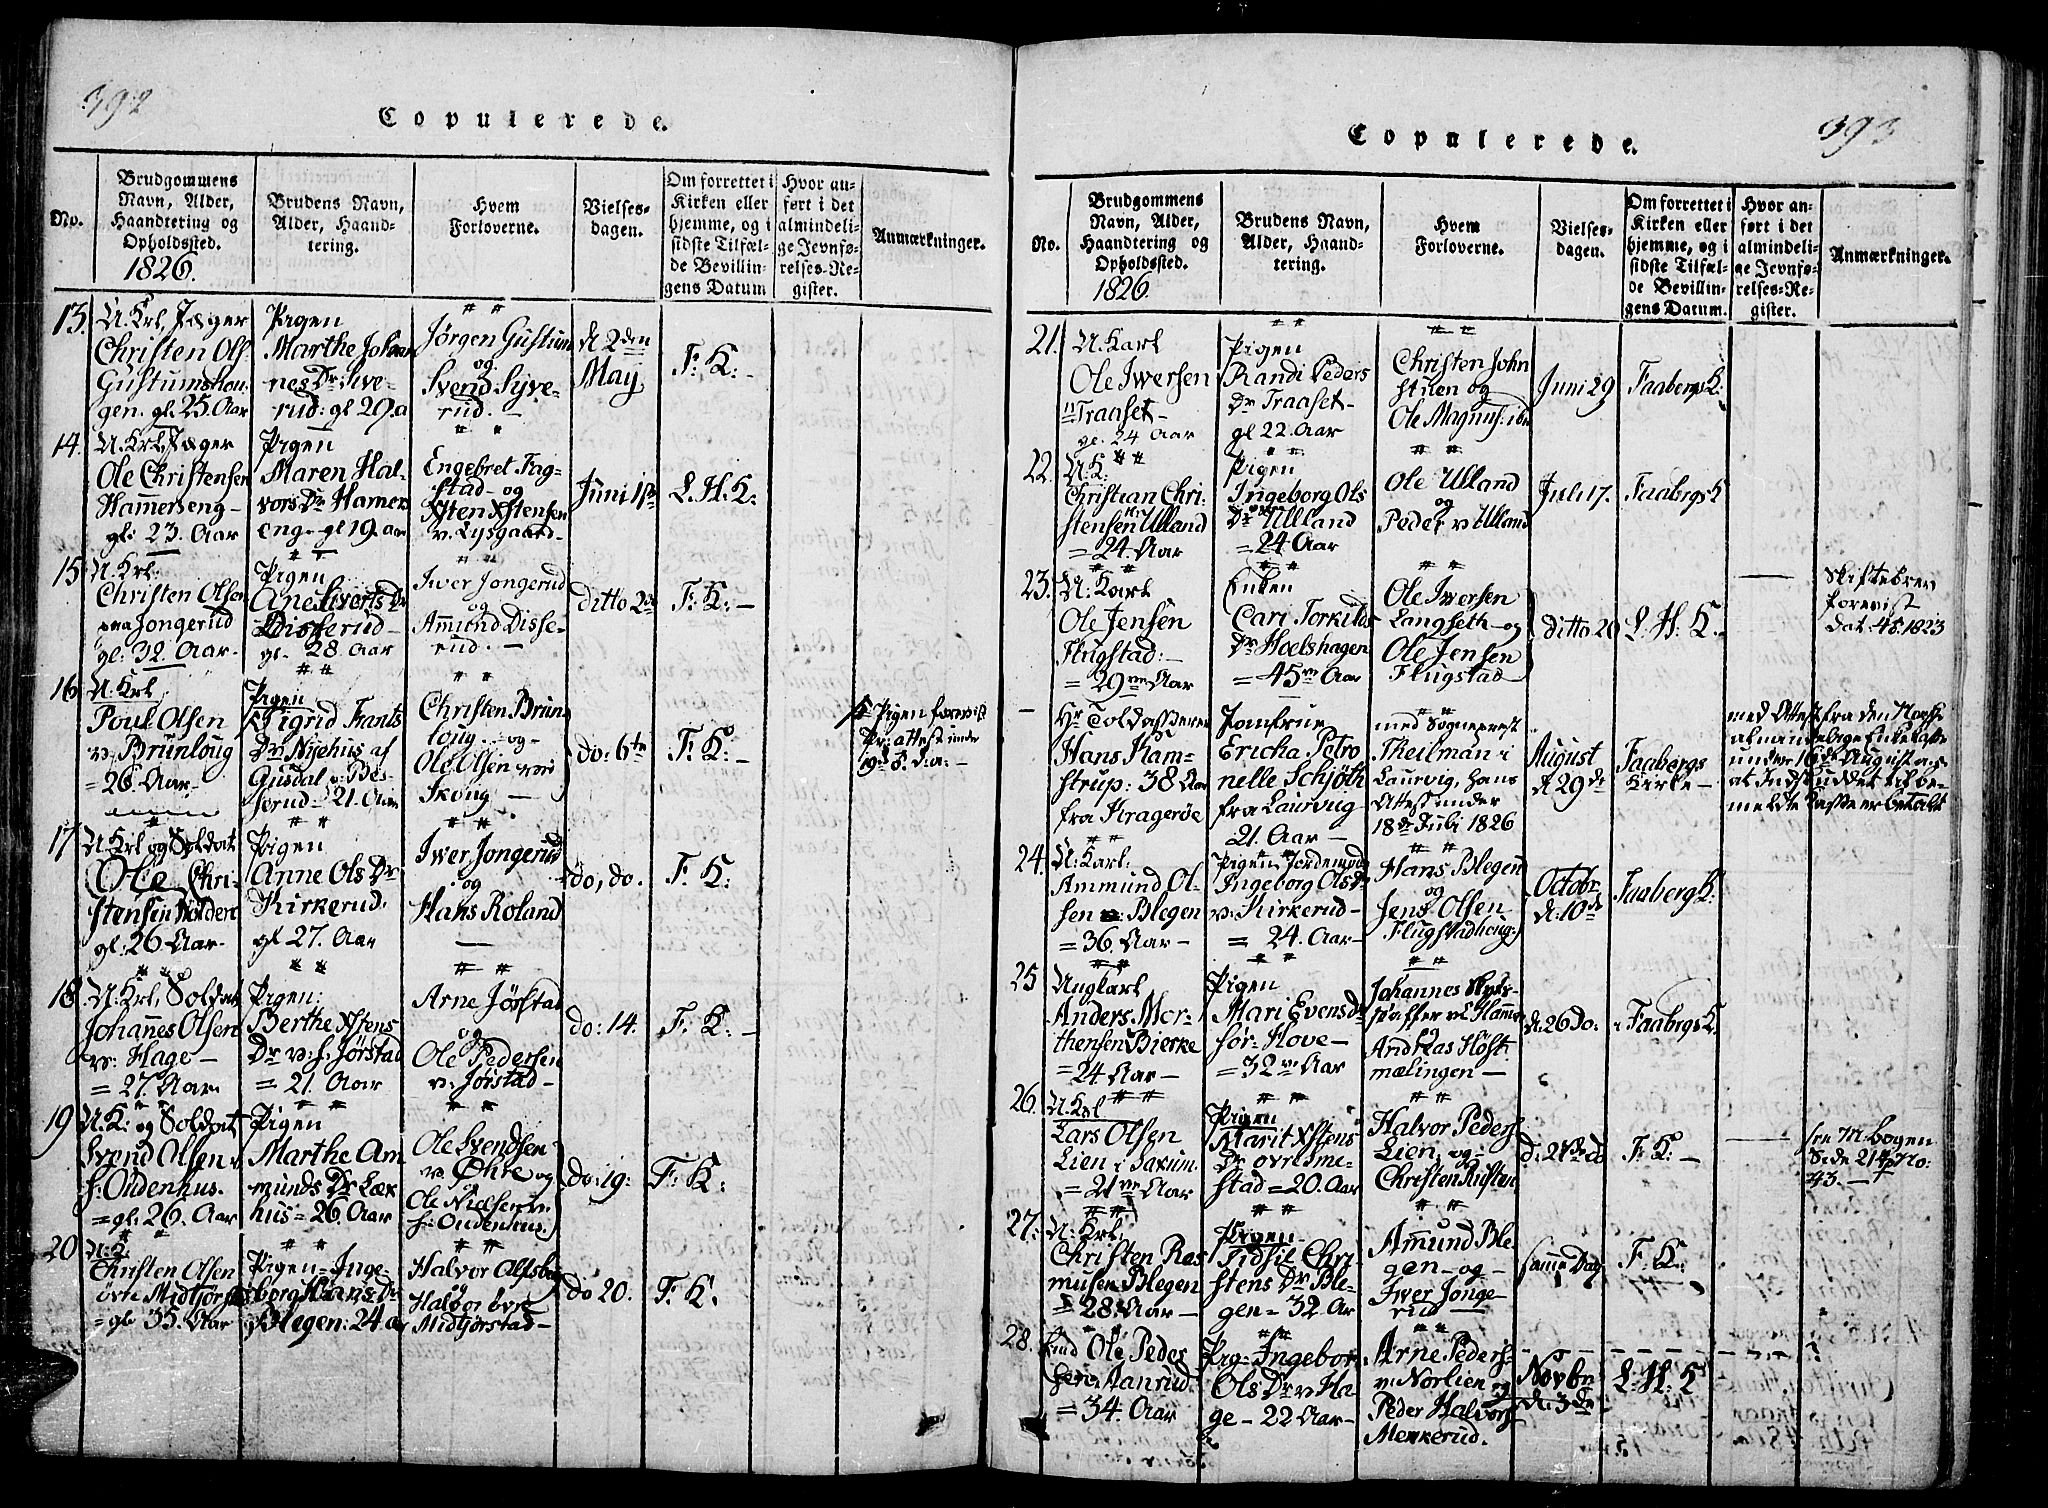 392
Copulerede.
No.
Brudgommens
Navn, Alder,
Haandtering og
Opholdssted.
1826.
Brudens Navn,
Alder, Haand-
tering.
Hvem
Forloverne.
Vielses-
dagen.
Om forrettet i
Kirken eller
hjemme, og i
sidste Tilfæl-
de Bevillin-
gens Datum
Hvor an-
ført i det
almindeli-
ge Jevnfø-
relses-Re-
gister.
Anmærkninger.
13.
U. Krl, Jæger
Christen Ols.
Gustumshou-
gen. gl. 25. Aar
Pigen
Marthe Johan
nes Dr. Sive-
rud: gl 29. a
Jørgen Gustum
og
Svend Syve-
rud. –
d 2den
May
F. K: –
14.
U. Krl, Jæger
Ole Christensen
Hammerseng –
gl. 23. Aar
Pigen
Maren Hal-
vors Dr Hamers
eng – gl 19. aar
Engebret Fag-
stad – og
Xsten Xstensen
v. Lysgaard –
Juni 1ste
L. H. K:
15.
U. Krl.
Christen Olsen
paa Jongerud
gl: 32. Aar.
Pigen
Ane Siverts Dr
Disserud –
gl. 28 Aar
Iwer Jongerud
og
Ammund Disse-
rud. –
ditto 2de
F. K: –
16.
U. Krl
Poul Olsen
v. Brunloug
= 26. Aar –
Pigen
Sigrid Frants
Dr Nyehus af
Gusdal v. Bes-
serud – 21. Aar
Christen Brun
loug – og –
Ole Olsen
Skoug –
do: 6te
F. K: –
Pigen forevist
Pr: attest under
17.
U. Krl og Soldat
Ole Chri-
stensen Nordere
gl: 26 Aar –
Pigen
Anne Ols Dr
Kirkerud
gl 27. Aar
Iwer Jongerud
og
Hans Roland
do, do.
F. K:
18.
U. Krl, Soldat
Johannes Olsen
v: Hage –
= 27. Aar
Pigen:
Berthe Xstens
Dr v: s. Jørstad
= 21. Aar
Arne Jørstad
og
Ole Pedersen
v: Jørstad –
do: 14.
F. K: –
19
U. K: og Soldat
Svend Olsen v.
s: Oudenhus.
= gl: 26. Aar
Pigen
Marthe Am
munds Dr Lax
hus = 26. Aar
Ole Svendsen
v. Øhre og
Ole Nielsen v:
s: Oudenhus.
do: 19:
F. K:
20
U: K.
Christen Olsen
øvre Midtjørst
= gl 35. Aar
Pigen – Inge-
borg Hans Dr
Blegen: 24 a
Halvor Alfsbo
og
Halvor øvre
Midtjørstad –
do 20.
F. K:
393
Copulerede.
No.
Brudgommens
Navn, Alder,
Haandtering og
Opholdssted.
1826.
Brudens Navn,
Alder, Haand-
tering.
Hvem
Forloverne.
Vielses-
dagen.
Om forrettet i
Kirken eller
hjemme, og i
sidste Tilfæl-
de Bevillin-
gens Datum.
Hvor an-
ført i det
almindeli-
ge Jevnfø-
relses-Re-
gister.
Anmærkninger.
21.
U. Karl
Ole Iwersen
Traaset –
gl. 24 Aar
Pigen
Randi Peders
Dr Traaset –
gl 22. Aar
Christen John
stuen og
Ole Magnus:
Juni 29
Faabergs K:
22.
U: K.
Christian Chri-
stensen Ulland
= 24. Aar
Pigen
Ingeborg Ols
Dr Ulland
= 24 Aar
Ole Ulland
og
Peder v Ulland
Juli 17.
Faabergs K
23.
U: Karl
Ole Jensen
Flugstad: –
= 29 Aar
Enken
Cari Torkilds
Dr Hoelshagen
= 45 Aar
Ole Iwersen
Langseth – og
Ole Jensen
Flugstad
ditto 20
L. H: K. –
Skiftebrev
forevist
dat. 1823
–
Hr Toldasserer
Hans Kam-
strup: 38 Aar
fra Kragerøe
Jomfrue
Ericha Petro
nelle Schjöth
fra Laurvug
21. Aar –
med Sognepræst
Theilman i
Laurvig, hans
Attest under
18de Juli 1826
August
d 29de
Faabergs
Kirke –
med Attest fra den Norske
almindelige Enkekasse
under 16de August
at Indskuddet til be-
meldte Casse er betalt
24.
U: Karl:
Ammund Ol-
sen Blegen
= 36. Aar –
Pigen
Ingeborg Ols Dr
v: Kirkerud –
= 24. Aar –
Hans Blegen
og
Jens Olsen
Flugstadhoug:
Octobr
d: 10de
Faaberg K:
25
Ungkarl
Anders Mor-
thensen Bierke
= 24 Aar –
Pigen
Mari Evens Dr
sør: Hove –
= 32 Aar
Johannes
og
Andreas Host
mælingen –
d: 26 Do:
Faabergs K.
26.
U. Krl
Lars Olsen
Lien i Saxum.
= 21 Aar
Pigen
Marit Xstens
Dr øvre Sme-
stad = 20. Aar
Halvor Peders
Lien, og –
Christen Rusten
d: do
F. K: –
see M. bogen
Side No:
43. –
27:
U: Krl,
Christen Ras
musen Blegen
= 28: Aar –
Pigen
Sidsil Chri-
stens Dr Ble-
gen = 32. Ar
Ammund Ble-
gen – og –
Iwer Jonge
rud
samme Dag
F. K: –
28.
Ole Peder
sen Aanrud
= 34. Aar
Pig: Ingebor
Ols Dr v. Ha
ge – 22 Aar –
Arne Peders:
v: Norlien og
Peder Halvors
Menkerud.
Novbr
d: 3de
L. H. K